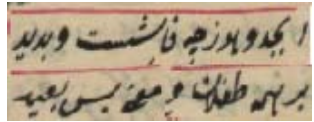 ابجد و هوز چه فانشست و بدید
بر همی طفلان و معنی بس بعید